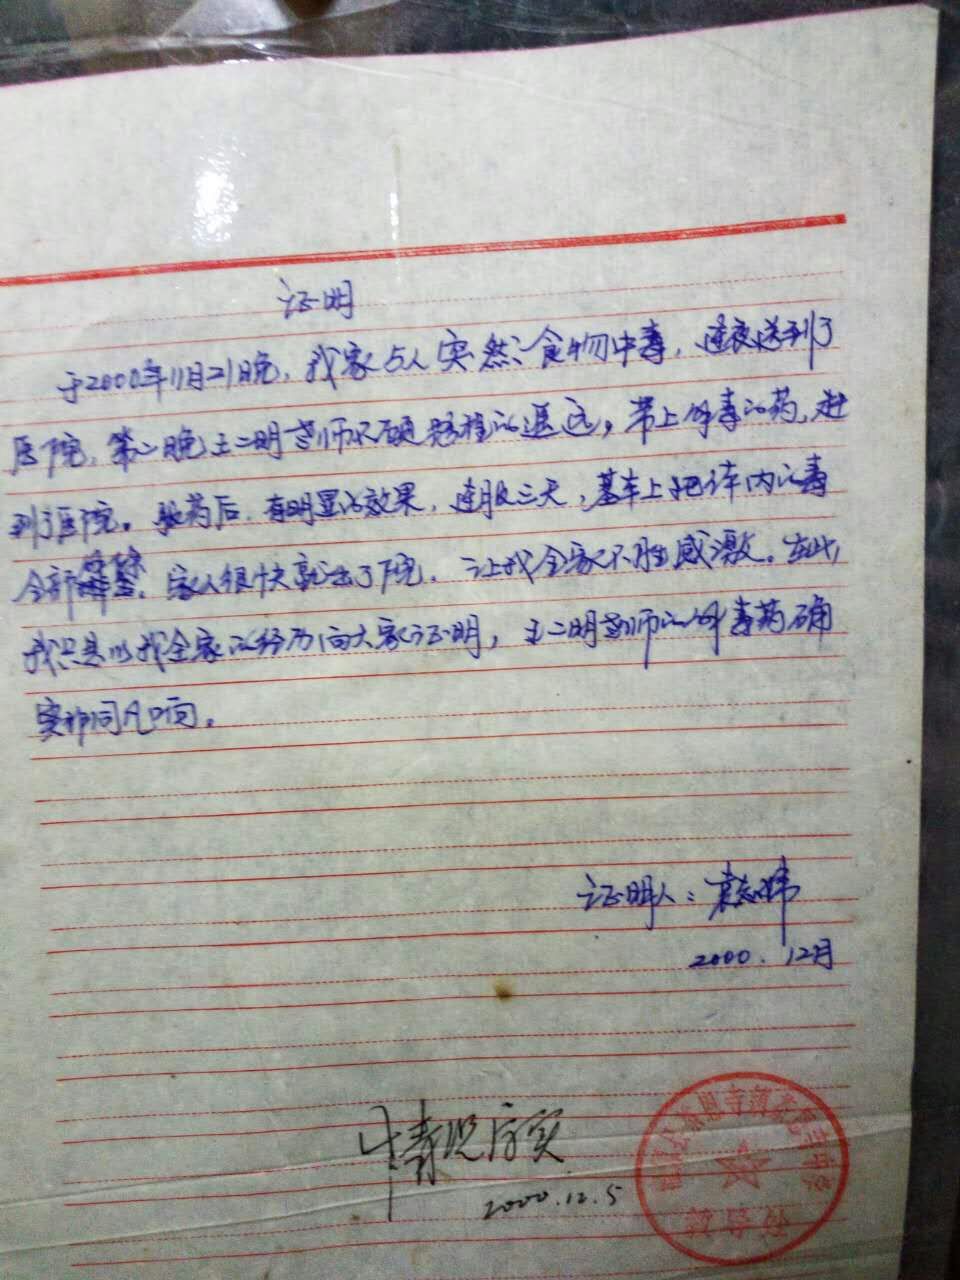 证明
于2000年11月21日晚，我家5人突然食物中毒，连夜送到了
医院，第二晚王二明药师不顾路程的遥远，带上解毒的药，赶
到了医院。验药后，有明显的效果，连服三天，基本上把体内的毒
全部解除，家人很快就出了院，让我全家不胜感激。在此，
我只是以我全家的经历向大家证明，王二明药师的解毒药确
实非同凡响。
证明人：袁志伟
2000.12月
情况属实
2000.12.5
教导处